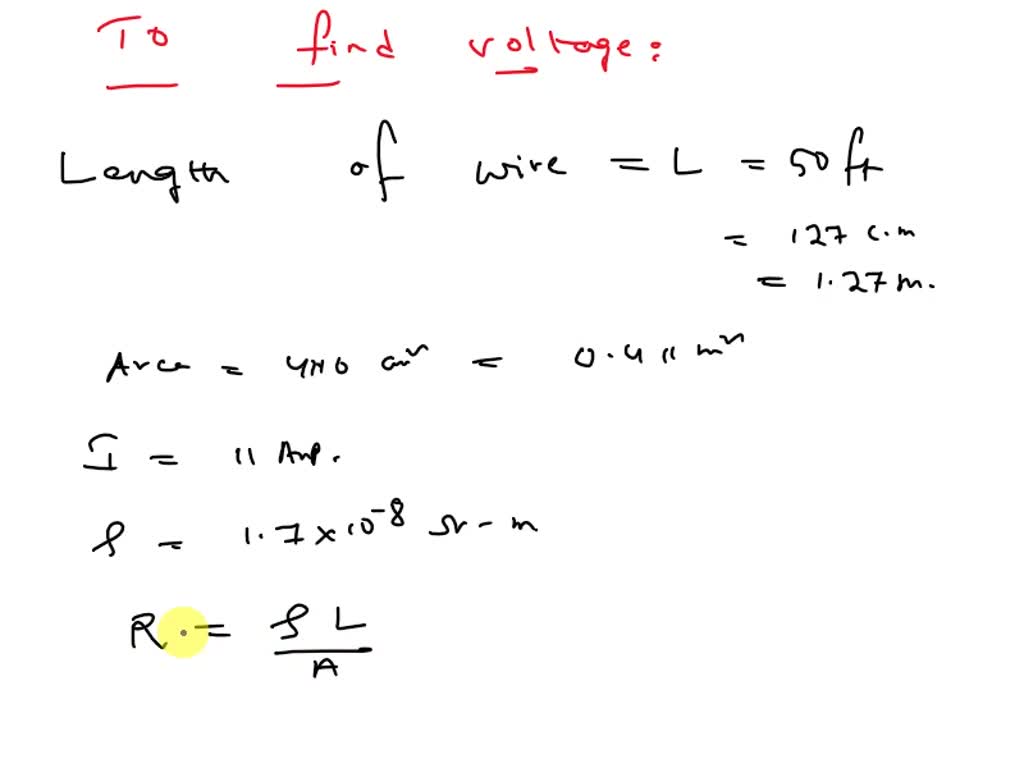 To find voltage:
Length of wire = L = 50 ft
= 127 c.m
= 1.27 m.
Area = 4110 cm² = 0.411 m²
I = 11 Amp.
ρ = 1.7 × 10⁻⁸ Ω - m
R = ρ L / A